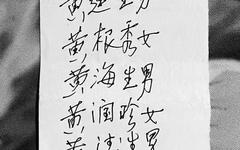 黄莲生男
黄根秀女
黄海生男
黄润珍女
黄清洪男